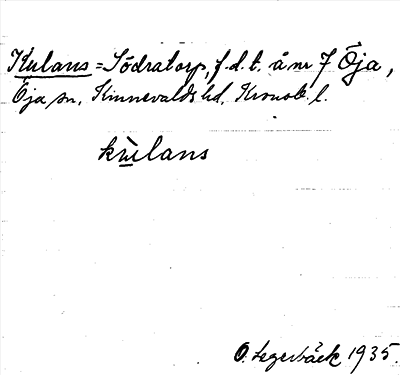 Kulans = Södratorp, f.d.t. å nr 7 Öja,
Öja sn, Kinnevalds hd, Kronob. l.
kulans
O. Legerbäck 1935.